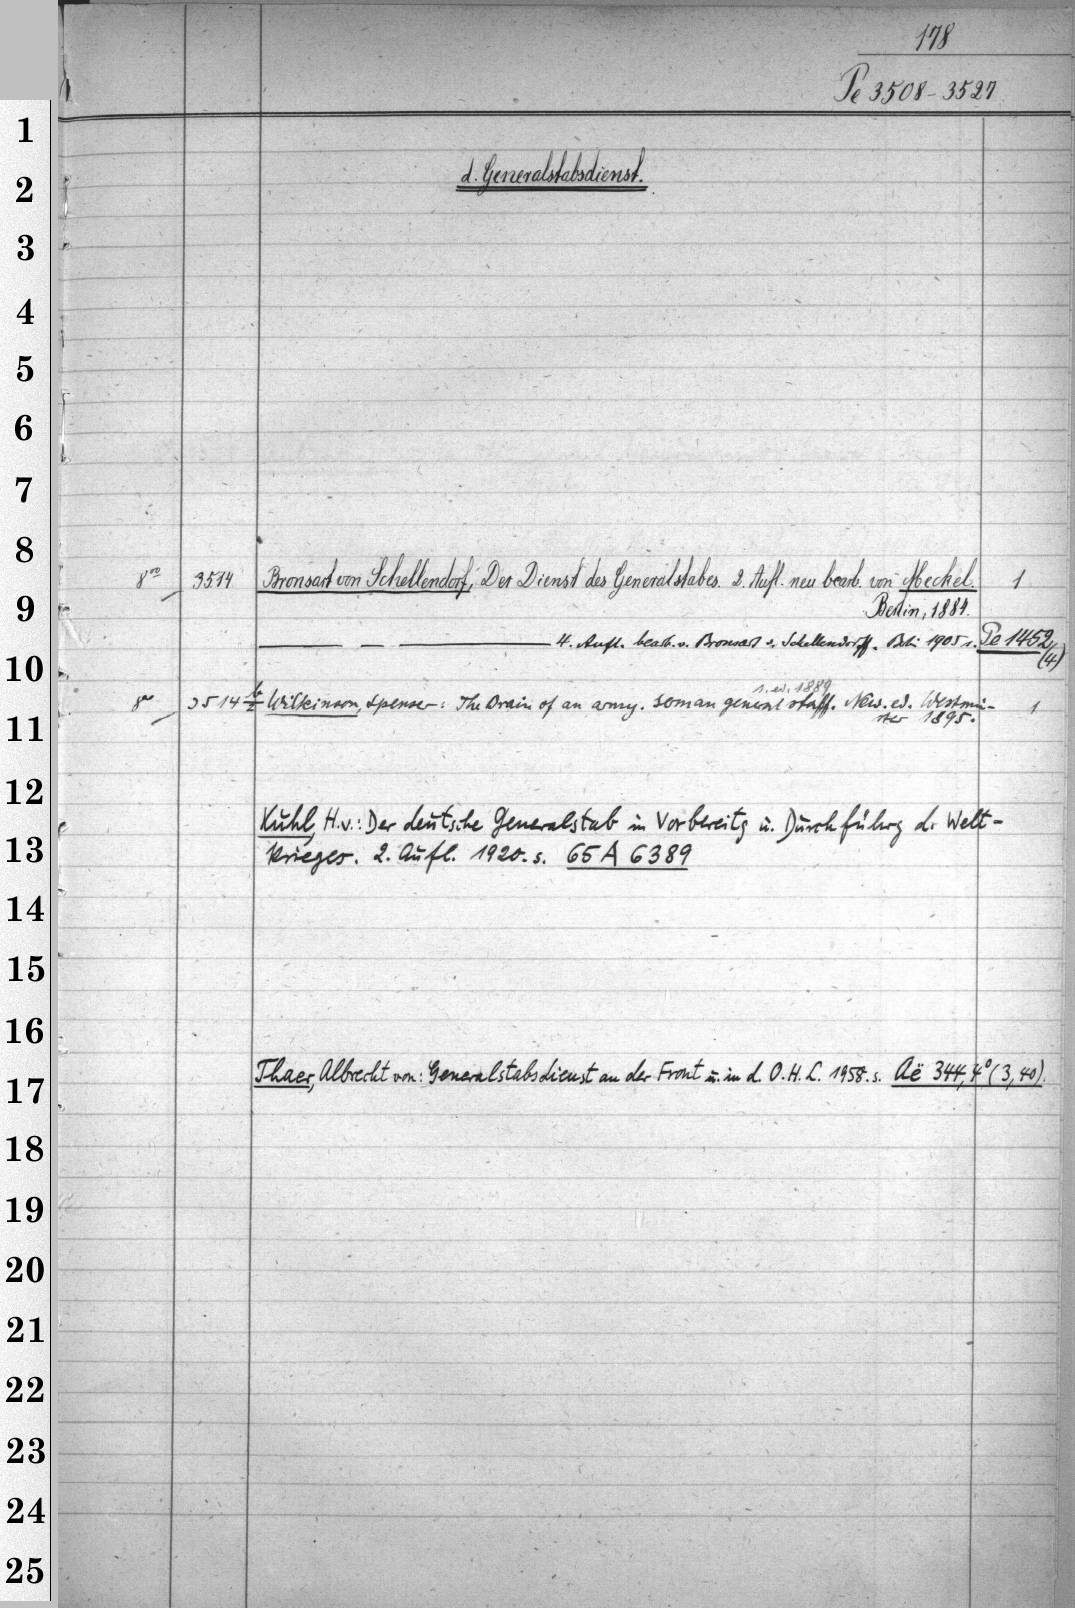 178
Pe 3508-3527
1
d. Generalstabsdienst.
2
3
4
5
6
7
8
8vo 3514 Bronsart von Schellendorf, Der Dienst des Generalstabes. 2. Aufl. neu bearb. von Meckel. 1
9
Berlin, 1884.
— — — 4. Aufl. bearb. v. Bronsart v. Schellendorff. Bln 1905 s. Pe 1452
(4)
10
1. ed. 1889
8vo 3514 b/2 Wilkinson, Spenser: The Brain of an army. German general staff. New. ed. Westmin- 1
ster 1895.
11
12
Kuhl, H.v.: Der deutsche Generalstab in Vorbereitg u. Durchführg d. Welt-
13
krieges. 2. Aufl. 1920. s. 65 A 6389
14
15
16
Thaer, Albrecht von: Generalstabsdienst an der Front u. in d. O.H.L. 1958. s. Aë 344, 4° (3,40).
17
18
19
20
21
22
23
24
25